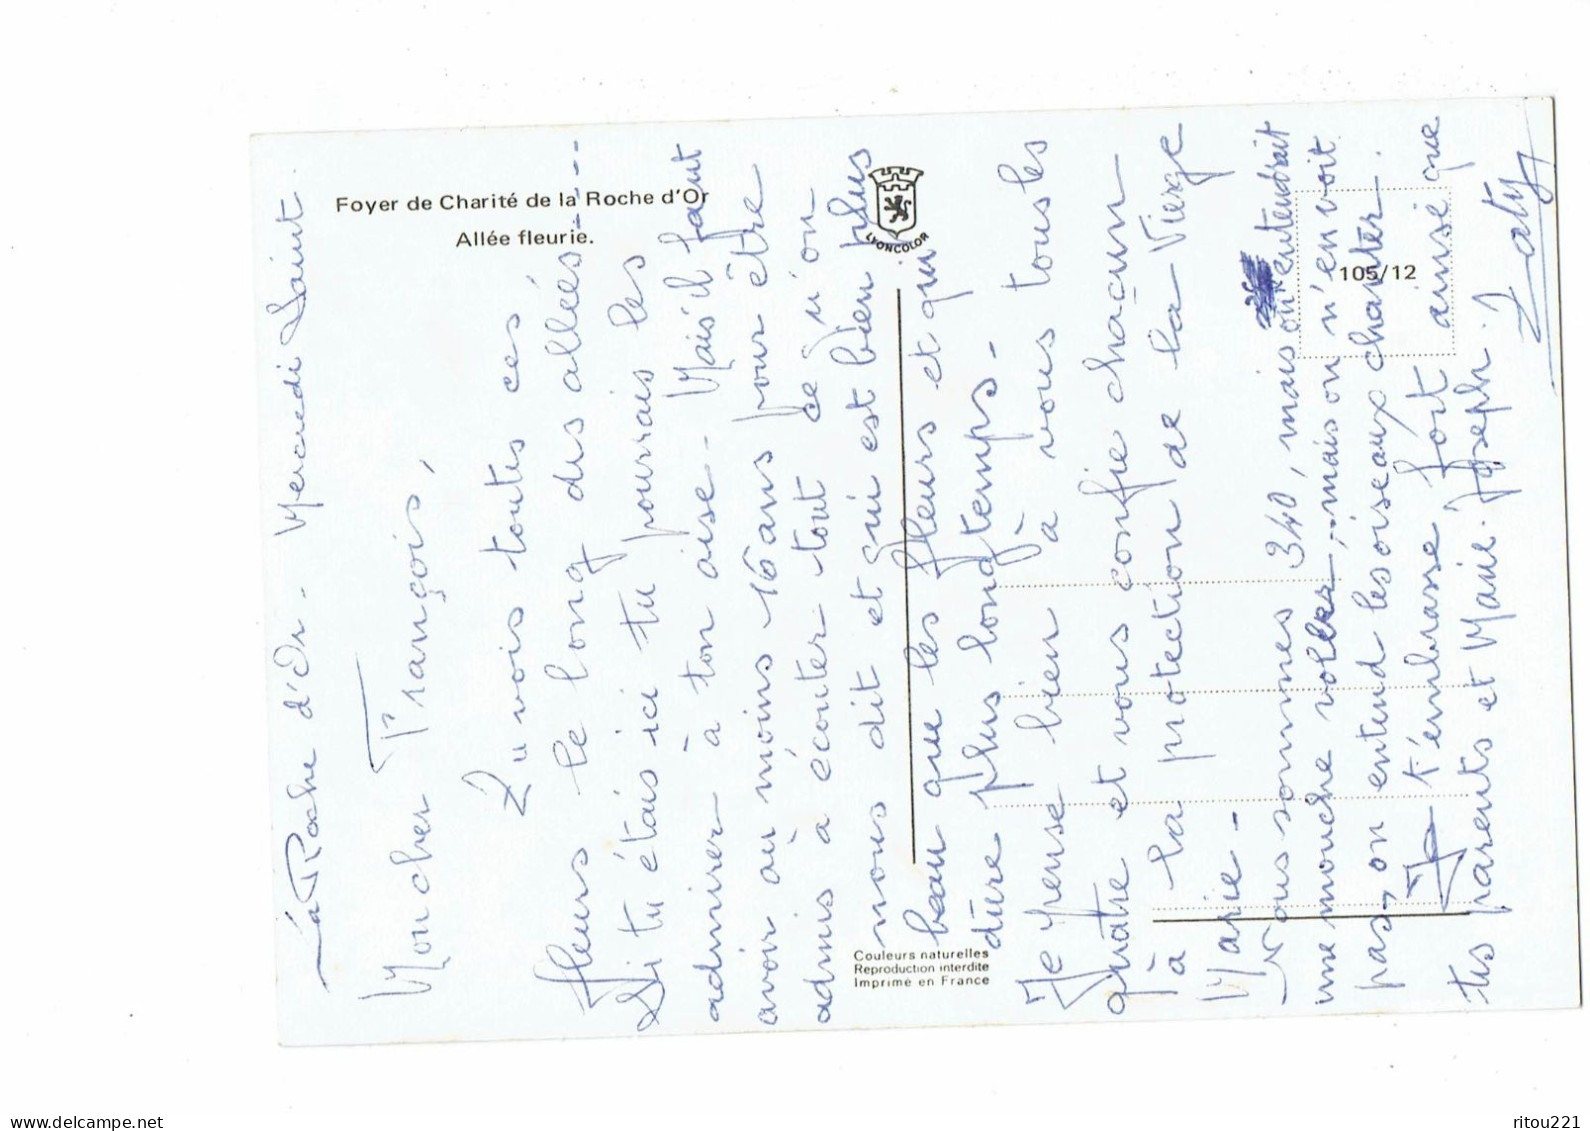 Foyer de Charité de la Roche d'Or
Allée fleurie.
LYONCOLOR
105/12
Couleurs naturelles
Reproduction interdite
Imprimé en France
La Roche d'Or - Mercredi Saint.
Mon cher François,
Tu vois toutes ces
fleurs le long des allées -----
Si tu étais ici tu pourrais les
admirer à ton aise - Mais il faut
avoir au moins 16 ans pour être
admis à écouter tout ce qu'on
nous dit et qui est bien plus
beau que les fleurs et qui
dure plus longtemps -
Je pense bien à vous tous les
quatre et vous confie chacun
à la protection de la Vierge
Marie -
Nous sommes 340, mais on entendrait
une mouche voler, mais on n'en voit
pas, on entend les oiseaux chanter.
Je t'embrasse fort ainsi que
tes parents et Marie-Joseph.
Laurence Delvigne
ritou221
www.delcampe.net